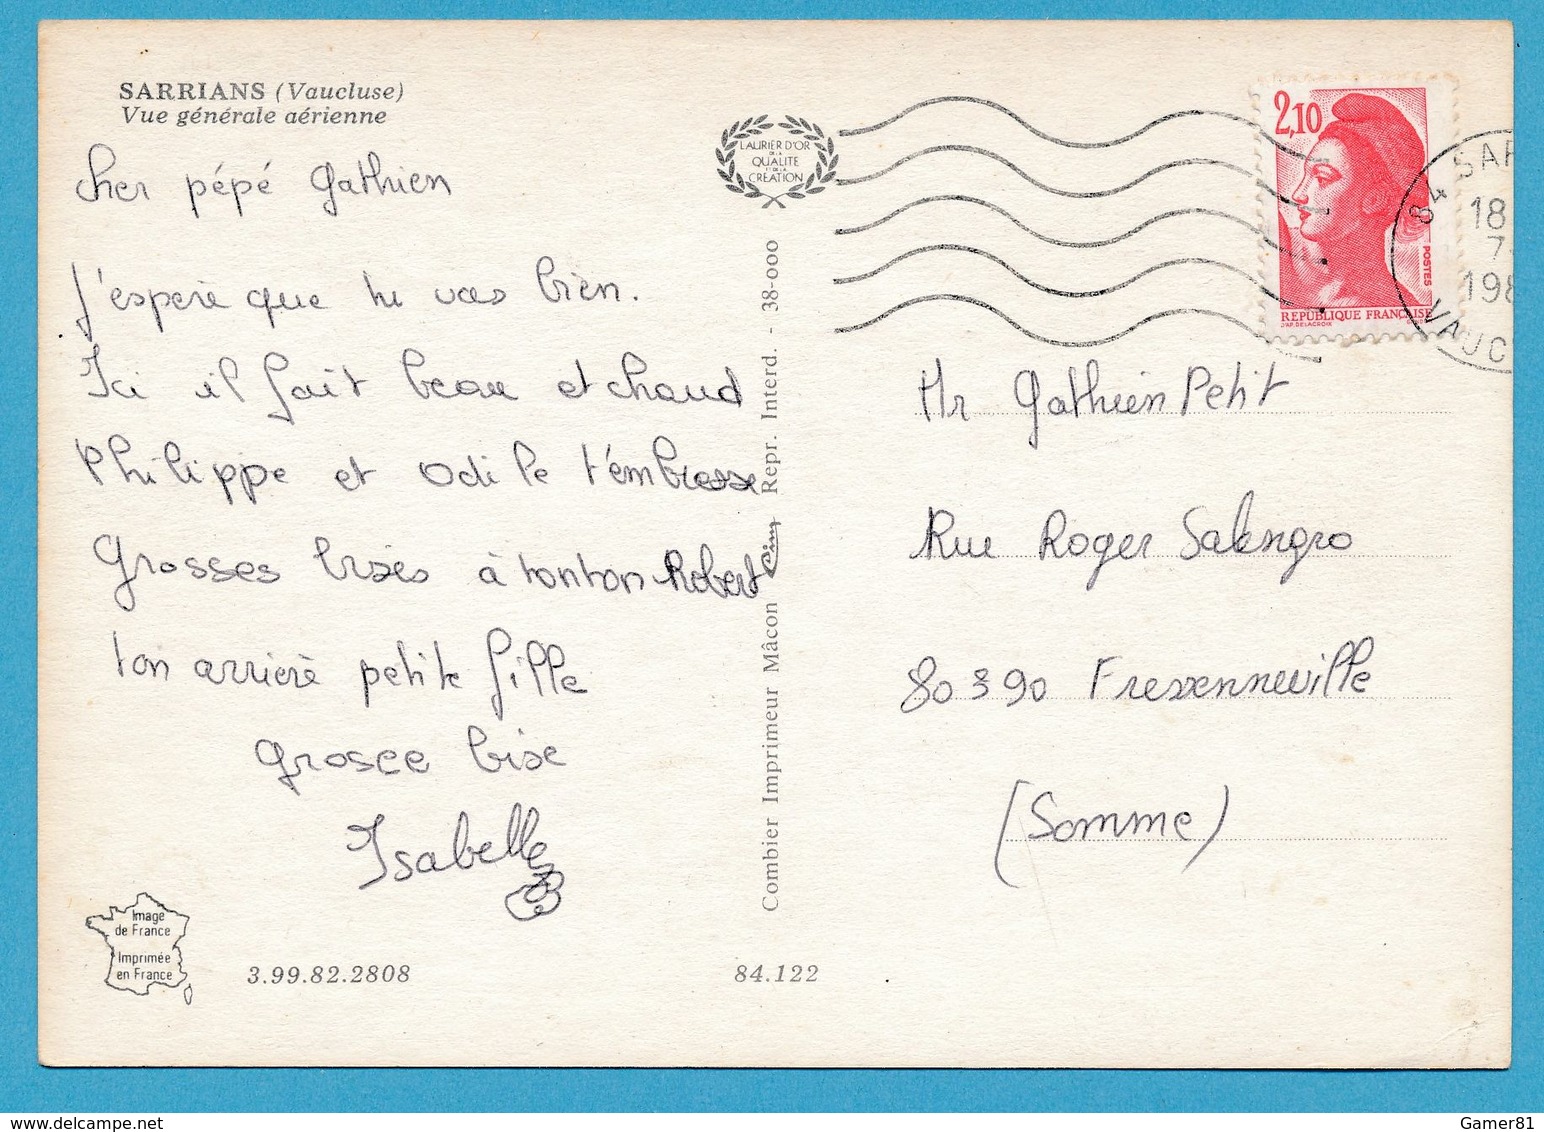 SARRIANS (Vaucluse)
Vue générale aérienne
Cher pépé Gathien
J'espère que tu vas bien.
Ici il fait beau et chaud
Philippe et Odile t'embrasse
Grosses bises à tonton Robert
ton arrière petite fille
Grosce bise
Isabelle
Image
de France
Imprimée
en France
3.99.82.2808
84.122
LAURIER D'OR
DE LA
QUALITE
ET DE LA
CREATION
Combier Imprimeur Mâcon Cim Repr. Interd. - 38-000
2,10
POSTES
REPUBLIQUE FRANÇAISE
D'AP. DELACROIX
84 SAR
18
7
198
VAUC
Mr Gathien Petit
Rue Roger Salengro
80390 Fressenneville
(Somme)
Gamer81